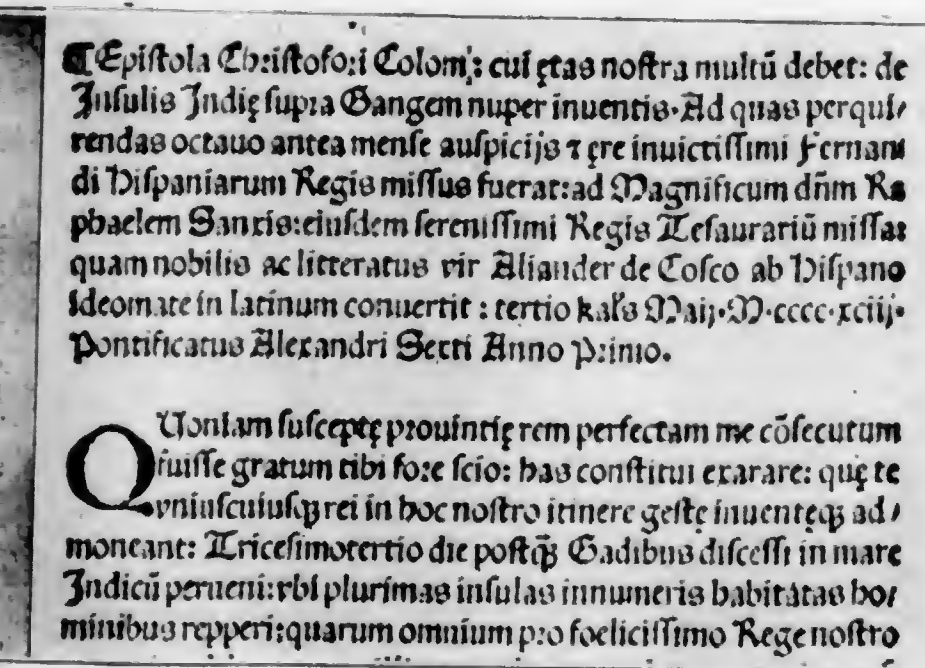 ¶Epiſtola Chꝛiſtofoꝛi Colom: cui ętas noſtra multū debet: de
Inſulis Indię ſupꝛa Gangem nuper inuentis·Ad quas perqui⸗
rendas octauo antea menſe auſpicijs ⁊ ęre inuictiſſimi Fernan
di Hiſpaniarum Regis miſſus fuerat:ad Magnificum dñm Ra
phaelem Sanxis:eiuſdem ſereniſſimi Regis Teſaurariū miſſa:
quam nobilis ac litteratus vir Aliander de Coſco ab Hiſpano
ideomate in latinum conuertit : tertio kal's Maij·M·cccc·xciij·
Pontificatus Alexandri Sexti Anno Pꝛimo.
QUoniam ſuſceptę pꝛouintię rem perfectam me cōſecutum
fuiſſe gratum tibi foꝛe ſcio: has conſtitui exarare: quę te
vniuſcuiuſqꝫ rei in hoc noſtro itinere geſtę inuentęqꝫ ad⸗
moneant: Triceſimotertio die poſtqꝫ̃ Gadibus diſceſſi in mare
Indicū perueni:vbi plurimas inſulas innumeris habitatas ho⸗
minibus repperi:quarum omnium pꝛo foeliciſſimo Rege noſtro